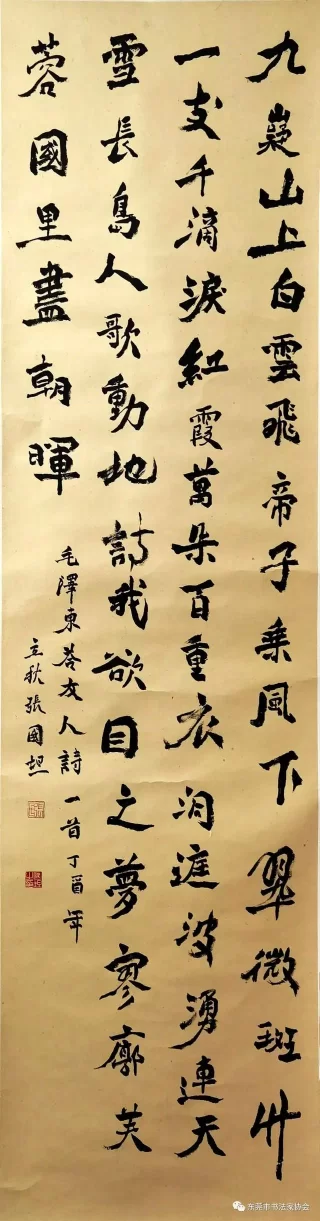 九嶷山上白雲飛帝子乘風下翠微斑竹
一支千滴淚紅霞萬朵百重衣洞庭波湧連天
雪長島人歌動地詩我欲因之夢寥廓芙
蓉國里盡朝暉
毛澤東答友人詩一首丁酉年
立秋張國坦
东莞市书法家协会